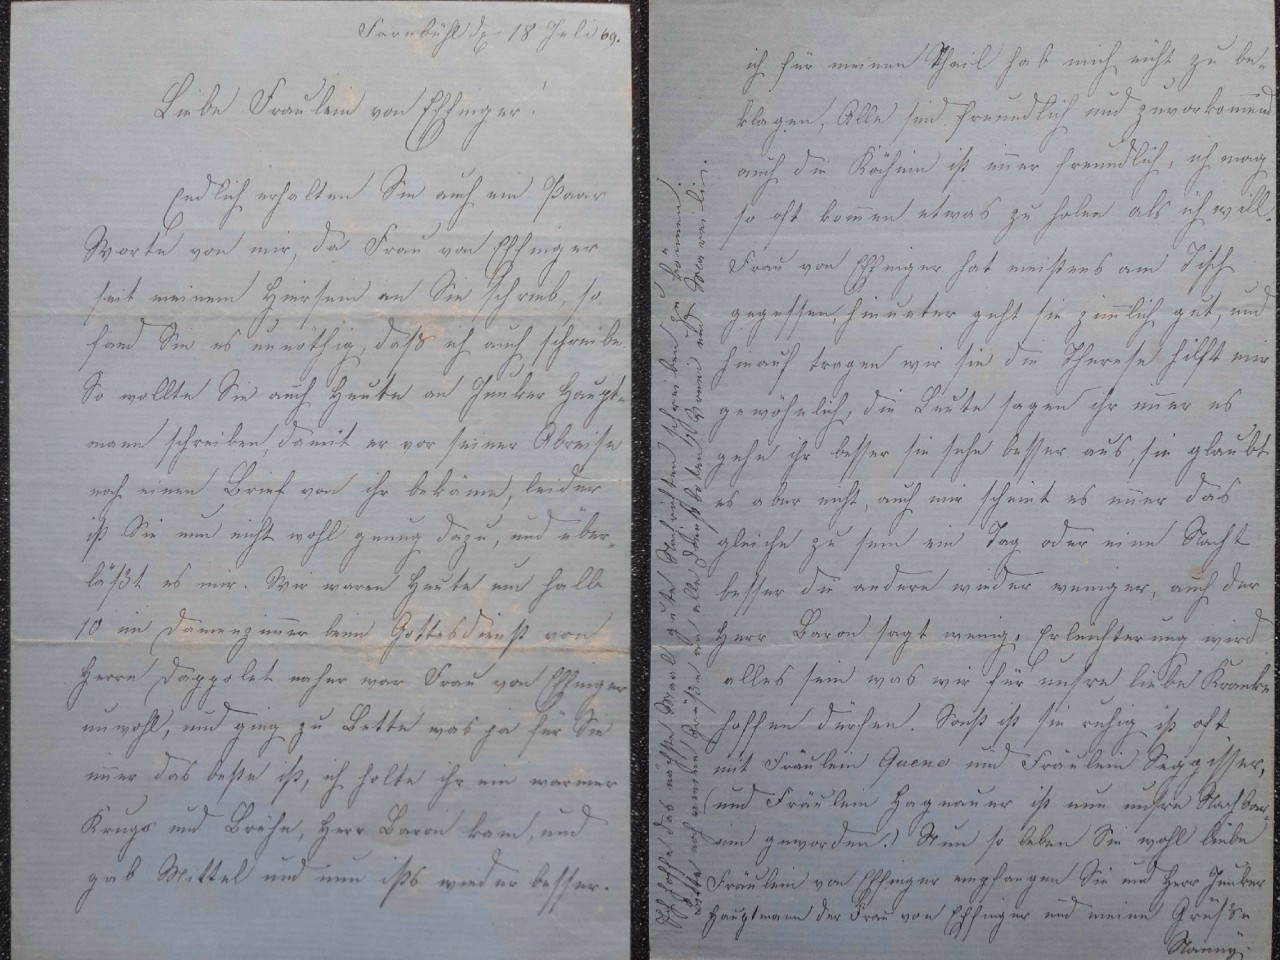 Farnbühl d. 18 Juli 69.
Liebe Fraulein von Effinger!
Endlich erhalten Sie auch ein Paar
Worte von mir, da Frau von Effinger
seit meinem Hiersein an Sie schrieb, so
fand Sie es unnöthig, daß ich auch schreibe.
So wollte Sie auch Heute an Junker Haupt-
mann schreiben, damit er vor seiner Abreise
noch einen Brief von ihr bekäme, leider
ist Sie nun nicht wohl genug dazu, und über-
läßt es mir. Wir waren Heute um halbe
10 im Damenzimmer beim Gottesdienst von
Herrn Dappolet naher war Frau von Effinger
unwohl, und ging zu Bette was ja für Sie
immer das beste ist, ich holte ihr ein warmer
Krugs und Brühe, Herr Baron kam, und
gab Mittel und nun ists wieder besser.
ich für meinen Theil hab mich nicht zu be-
klagen, Alle sind freundlich und zuvorkommend
auch die Köchin ist immer freundlich, ich mag
so oft kommen etwas zu holen als ich will.
Frau von Effinger hat meistens am Tisch
gegessen, hinunter geht sie zimlich gut, und
hinauf tragen wir sie die Therese hilft mir
gewöhnlich, die Leute sagen ihr immer es
gehe ihr besser sie sehe besser aus, sie glaubt
es aber nicht, auch mir scheint es immer das
gleiche zu sein ein Tag oder eine Nacht
besser die andere wieder weniger, auch der
Herr Baron sagt wenig, Erleichterung wird
alles sein was wir für unsre liebe Kranke
hoffen dürfen. Sonst ist sie ruhig ist oft
mit Fräulein Quene und Fräulein Seggisser,
(und Fräulein Hagnauer ist nun unsre Nachbar-
in geworden.) Nun so leben Sie wohl liebe
Fräulein von Effinger empfangen Sie und Herr Junker
Hauptmann der Frau von Effinger und meine Grüße
Nanny.
Ich hoffe das nächste Mal gute Nachrichten schreiben zu können
bitte noch meine Grüße an alle Dienstboten, Vreni und Mareili.